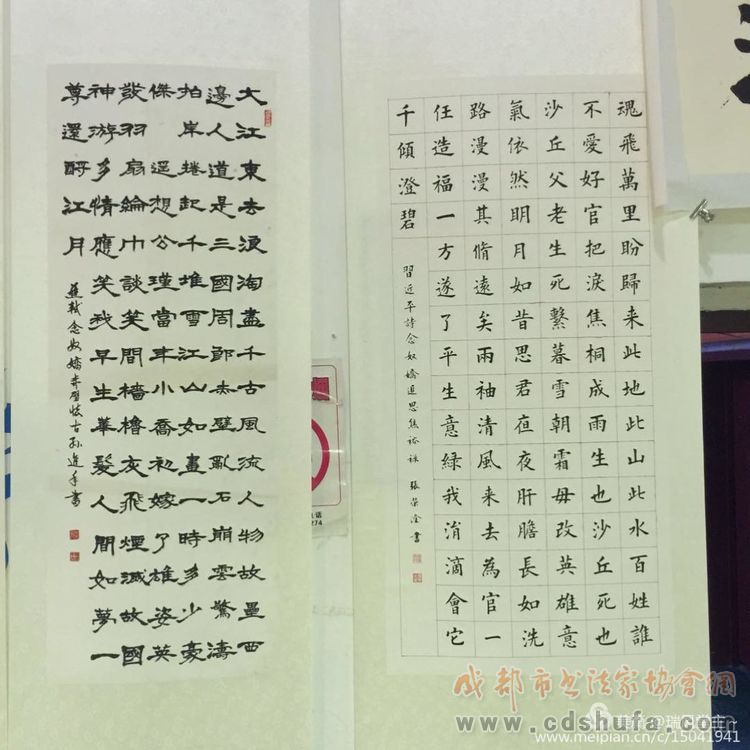 大江東去浪淘盡千古風流人物故壘西
邊人道是三國周郎赤壁亂石崩雲驚濤
拍岸捲起千堆雪江山如畫一時多少豪
傑遥想公瑾當年小喬初嫁了雄姿英
發羽扇綸巾談笑間檣櫓灰飛煙滅故國
神游多情應笑我早生華髮人間如夢一
尊還酹江月
蘇軾念奴嬌赤壁懷古孫進書
魂飛萬里盼歸来此地此山此水百姓誰
不愛好官把淚焦桐成雨生也沙丘死也
沙丘父老生死繫暮雪朝霜毋改英雄意
氣依然明月如昔思君亱夜肝膽長如洗
路漫漫其脩遠矣兩袖清風来去為官一
任造福一方遂了平生意綠我涓滴會它
千傾澄碧
習近平詩念奴嬌追思焦裕祿 張荣書
274
成都市书法家協會網
www.cdshufa.com
www.meipian.cn/c/15041941